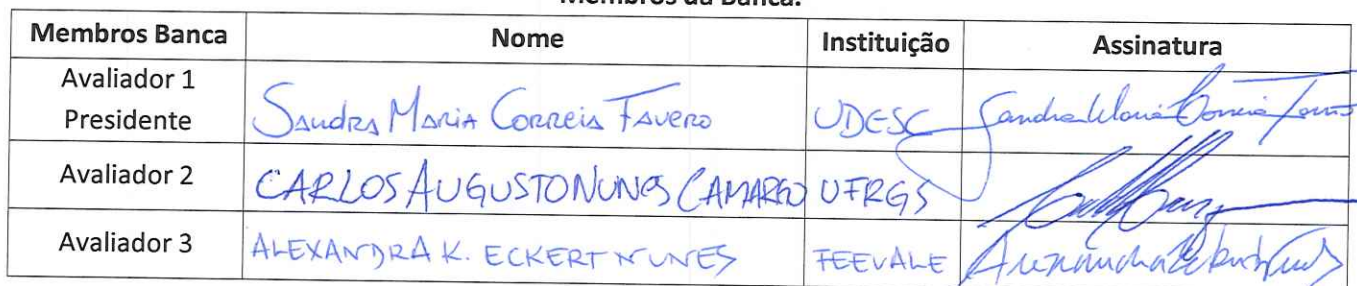 Membros da Banca:
Membros Banca Nome Instituição Assinatura
Avaliador 1
Presidente Sandra Maria Correia Favero UDESC Sandra Maria Correia Favero
Avaliador 2 CARLOS AUGUSTO NUNES CAMARGO UFRGS
Avaliador 3 ALEXANDRA K. ECKERT NUNES FEEVALE